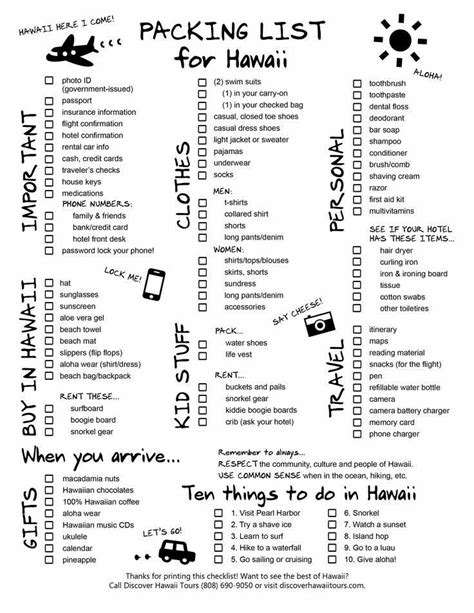 HAWAII HERE I COME!
PACKING LIST
for Hawaii
ALOHA!
IMPORTANT
photo ID
(government-issued)
passport
insurance information
flight confirmation
hotel confirmation
rental car info
cash, credit cards
traveler's checks
house keys
medications
PHONE NUMBERS:
family & friends
bank/credit card
hotel front desk
password lock your phone!
LOCK ME!
CLOTHES
(2) swim suits
(1) in your carry-on
(1) in your checked bag
casual, closed toe shoes
casual dress shoes
light jacket or sweater
pajamas
underwear
socks
MEN:
t-shirts
collared shirt
shorts
long pants/denim
WOMEN:
shirts/tops/blouses
skirts, shorts
sundress
long pants/denim
accessories
PERSONAL
toothbrush
toothpaste
dental floss
deodorant
bar soap
shampoo
conditioner
brush/comb
shaving cream
razor
first aid kit
multivitamins
SEE IF YOUR HOTEL
HAS THESE ITEMS...
hair dryer
curling iron
iron & ironing board
tissue
cotton swabs
other toiletires
BUY IN HAWAII
hat
sunglasses
sunscreen
aloe vera gel
beach towel
beach mat
slippers (flip flops)
aloha wear (shirt/dress)
beach bag/backpack
RENT THESE...
surfboard
boogie board
snorkel gear
KID STUFF
PACK...
water shoes
life vest
RENT...
buckets and pails
snorkel gear
kiddie boogie boards
crib (ask your hotel)
SAY CHEESE!
TRAVEL
itinerary
maps
reading material
snacks (for the flight)
pen
refillable water bottle
camera
camera battery charger
memory card
phone charger
When you arrive...
Remember to always...
RESPECT the community, culture and people of Hawaii.
USE COMMON SENSE when in the ocean, hiking, etc.
GIFTS
macadamia nuts
Hawaiian chocolates
100% Hawaiian coffee
aloha wear
Hawaiian music CDs
ukulele
calendar
pineapple
LET'S GO!
Ten things to do in Hawaii
1. Visit Pearl Harbor
2. Try a shave ice
3. Learn to surf
4. Hike to a waterfall
5. Go sailing or cruising
6. Snorkel
7. Watch a sunset
8. Island hop
9. Go to a luau
10. Give aloha!
Thanks for printing this checklist! Want to see the best of Hawaii?
Call Discover Hawaii Tours (808) 690-9050 or visit discoverhawaiitours.com.